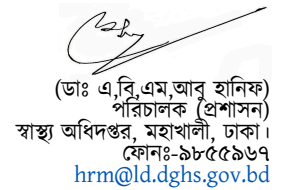 (ডাঃ এ,বি,এম,আবু হানিফ)
পরিচালক (প্রশাসন)
স্বাস্থ্য অধিদপ্তর, মহাখালী, ঢাকা।
ফোনঃ-৯৮৫৫৯৬৭
hrm@ld.dghs.gov.bd